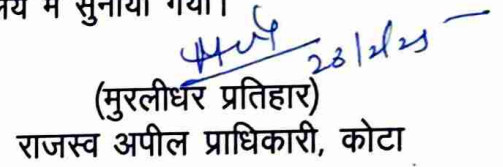 में सुनाया गया।
23/2/25
(मुरलीधर प्रतिहार)
राजस्व अपील प्राधिकारी, कोटा